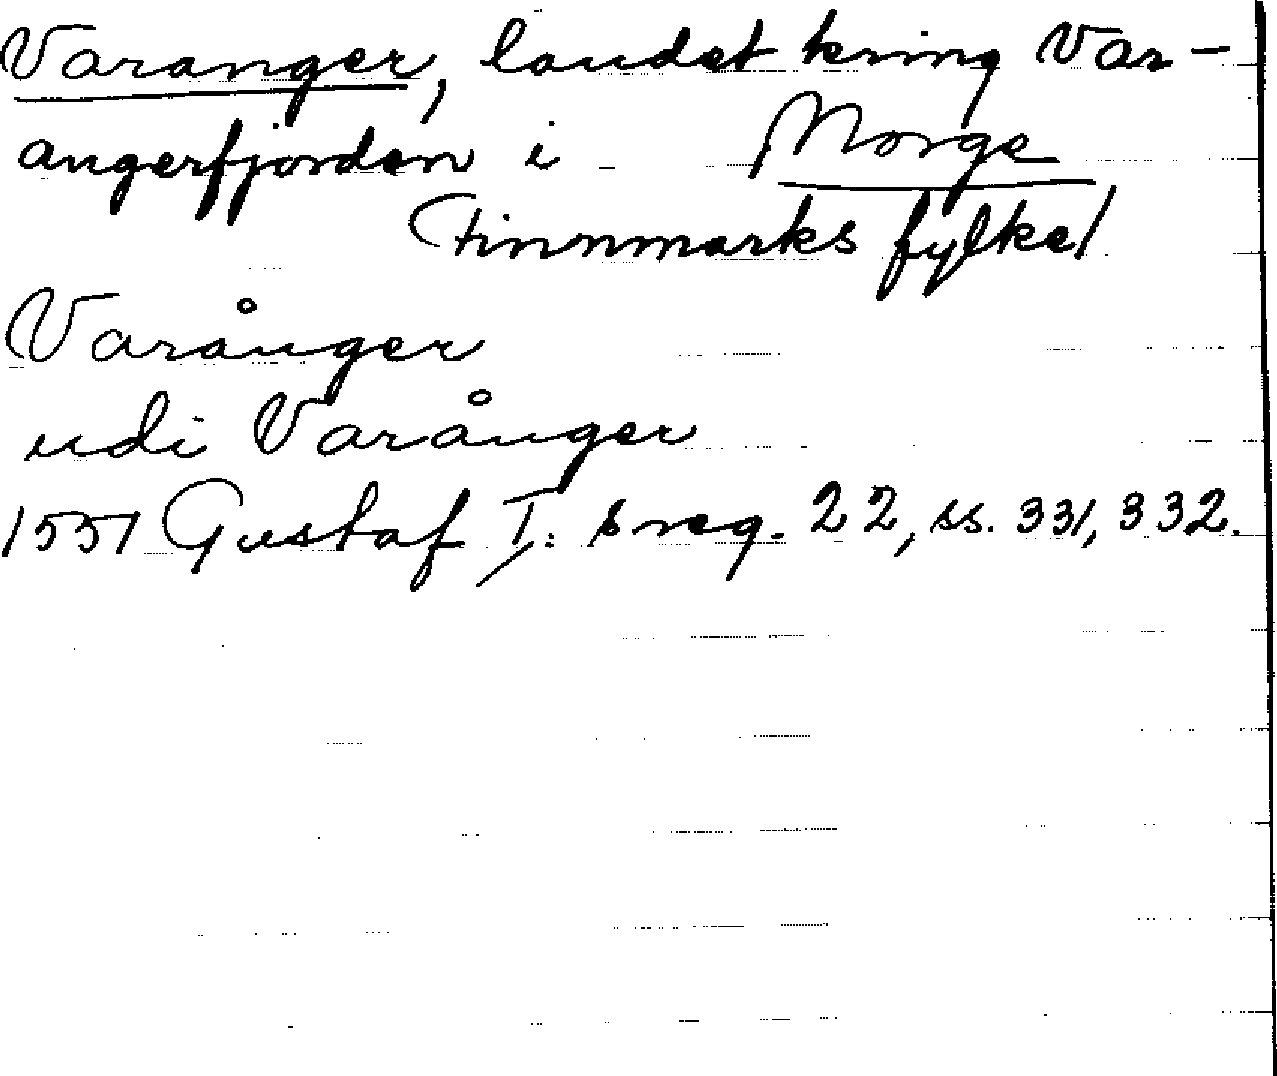 Varanger, landet kring Var-
angerfjorden i Norge
Finnmarks fylke/
Varånger
udi Varånger
1551 Gustaf I: s reg. 22, ss. 331, 332.